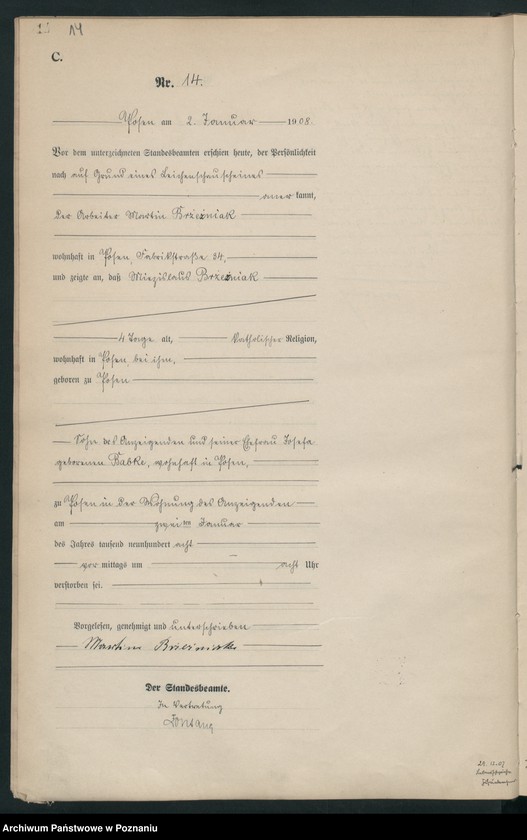 14
C.
Nr. 14.
Posen am 2. Januar 1908.
Vor dem unterzeichneten Standesbeamten erschien heute, der Persönlichkeit
nach auf Grund eines Leichenschauscheines
aner kannt,
der Arbeiter Martin Brzezniak
wohnhaft in Posen, Fabrikstraße 34,
und zeigte an, daß Miezislaus Brzezniak
4 Tage alt, katholischer Religion,
wohnhaft in Posen, bei ihm,
geboren zu Posen
Sohn des Anzeigenden und seiner Ehefrau Josefa
geborenen Babke, wohnhaft in Posen,
zu Posen in der Wohnung des Anzeigenden
am zweiten Januar
des Jahres tausend neunhundert acht
vor mittags um acht Uhr
verstorben sei.
Vorgelesen, genehmigt und unterschrieben
Martin
Der Standesbeamte.
In Vertretung
Archiwum Państwowe w Poznaniu